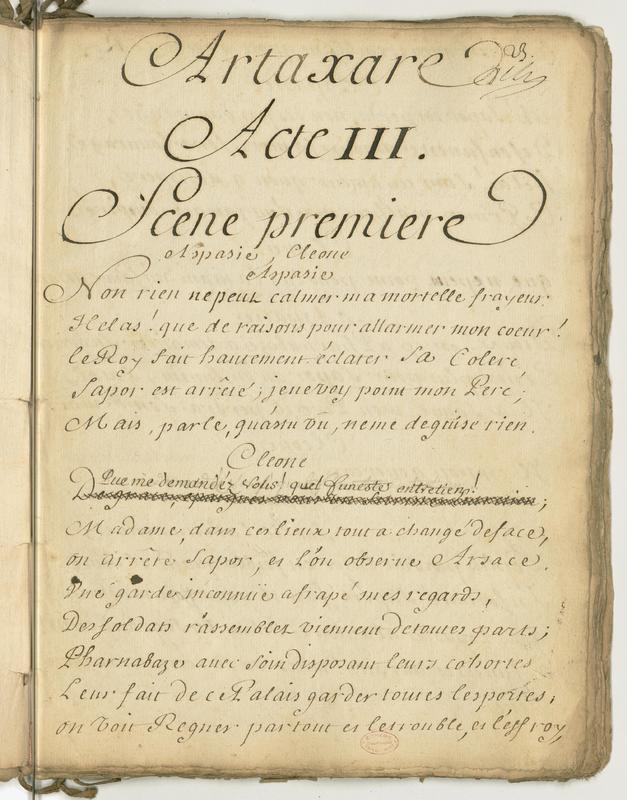 Artaxare
Acte III.
Scene premiere
Aspasie, Cleone
Aspasie
Non rien ne peut calmer ma mortelle frayeur.
Helas! que de raisons pour allarmer mon coeur!
le Roy fait hautement éclater sa Colere,
Sapor est arrêté; je ne voy point mon Pere;
Mais, parle, quástu vû, ne me deguise rien.
Cleone
Que me demandéz vous! quel funeste entretien!
Madame, dans ces lieux tout a changé de face,
on arrête Sapor, et l'on observe Arsace.
Une garde inconnüe a frapé mes regards,
Des soldats r'assemblez viennent de toutes parts;
Pharnabaze avec soin disposant leurs cohortes
Leur fait de ce Palais garder toutes les portes;
on voit Regner partout et le trouble, et l'effroy,